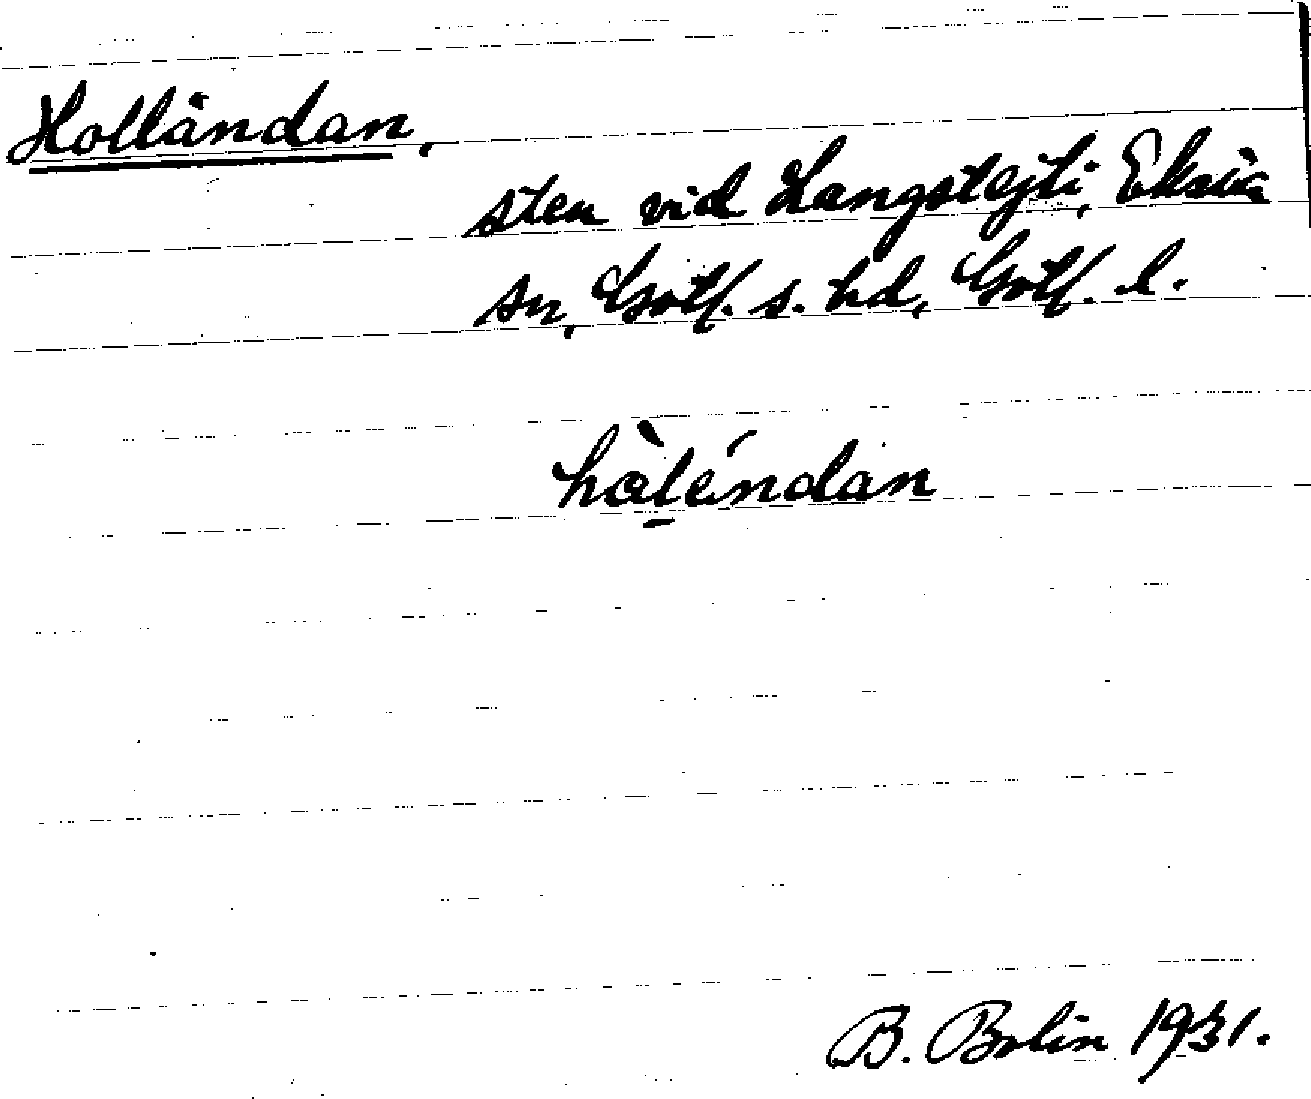 Holländan,
sten vid Langstejti, Eksta
sn, Gotl. s. hd, Gotl. l.
hàléndan
B. Bolin 1931.